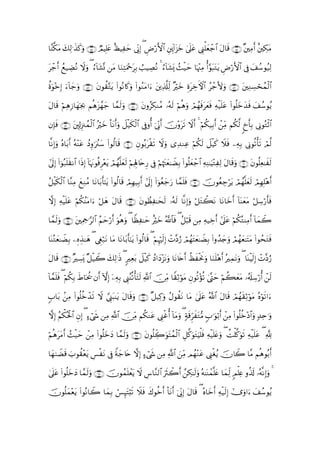 مَكِينٌ أَمِينٌ ﴿٥٤﴾ قَالَ ٱجْعَلْنِى عَلَىٰ خَزَآئِنِ ٱلْأَرْضِ ۖ إِنِّى حَفِيظٌ عَلِيمٌ ﴿٥٥﴾ وَكَذَٰلِكَ مَكَّنَّا
لِيُوسُفَ فِى ٱلْأَرْضِ يَتَبَوَّأُ مِنْهَا حَيْثُ يَشَآءُ ۚ نُصِيبُ بِرَحْمَتِنَا مَن نَّشَآءُ ۖ وَلَا نُضِيعُ أَجْرَ
ٱلْمُحْسِنِينَ ﴿٥٦﴾ وَلَأَجْرُ ٱلْـَٔاخِرَةِ خَيْرٌ لِّلَّذِينَ ءَامَنُوا۟ وَكَانُوا۟ يَتَّقُونَ ﴿٥٧﴾ وَجَآءَ إِخْوَةُ
يُوسُفَ فَدَخَلُوا۟ عَلَيْهِ فَعَرَفَهُمْ وَهُمْ لَهُۥ مُنكِرُونَ ﴿٥٨﴾ وَلَمَّا جَهَّزَهُم بِجَهَازِهِمْ قَالَ
ٱئْتُونِى بِأَخٍ لَّكُم مِّنْ أَبِيكُمْ ۚ أَلَا تَرَوْنَ أَنِّىٓ أُوفِى ٱلْكَيْلَ وَأَنَا۠ خَيْرُ ٱلْمُنزِلِينَ ﴿٥٩﴾ فَإِن
لَّمْ تَأْتُونِى بِهِۦ فَلَا كَيْلَ لَكُمْ عِندِى وَلَا تَقْرَبُونِ ﴿٦٠﴾ قَالُوا۟ سَنُرَٰوِدُ عَنْهُ أَبَاهُ وَإِنَّا
لَفَٰعِلُونَ ﴿٦١﴾ وَقَالَ لِفِتْيَٰنِهِ ٱجْعَلُوا۟ بِضَٰعَتَهُمْ فِى رِحَالِهِمْ لَعَلَّهُمْ يَعْرِفُونَهَآ إِذَا ٱنقَلَبُوٓا۟ إِلَىٰٓ
أَهْلِهِمْ لَعَلَّهُمْ يَرْجِعُونَ ﴿٦٢﴾ فَلَمَّا رَجَعُوٓا۟ إِلَىٰٓ أَبِيهِمْ قَالُوا۟ يَٰٓأَبَانَا مُنِعَ مِنَّا ٱلْكَيْلُ
فَأَرْسِلْ مَعَنَآ أَخَانَا نَكْتَلْ وَإِنَّا لَهُۥ لَحَٰفِظُونَ ﴿٦٣﴾ قَالَ هَلْ ءَامَنُكُمْ عَلَيْهِ إِلَّا
كَمَآ أَمِنتُكُمْ عَلَىٰٓ أَخِيهِ مِن قَبْلُ ۖ فَٱللَّهُ خَيْرٌ حَٰفِظًا ۖ وَهُوَ أَرْحَمُ ٱلرَّٰحِمِينَ ﴿٦٤﴾ وَلَمَّا
فَتَحُوا۟ مَتَٰعَهُمْ وَجَدُوا۟ بِضَٰعَتَهُمْ رُدَّتْ إِلَيْهِمْ ۖ قَالُوا۟ يَٰٓأَبَانَا مَا نَبْغِى ۖ هَٰذِهِۦ بِضَٰعَتُنَا
رُدَّتْ إِلَيْنَا ۖ وَنَمِيرُ أَهْلَنَا وَنَحْفَظُ أَخَانَا وَنَزْدَادُ كَيْلَ بَعِيرٍ ۖ ذَٰلِكَ كَيْلٌ يَسِيرٌ ﴿٦٥﴾ قَالَ
لَنْ أُرْسِلَهُۥ مَعَكُمْ حَتَّىٰ تُؤْتُونِ مَوْثِقًا مِّنَ ٱللَّهِ لَتَأْتُنَّنِى بِهِۦٓ إِلَّآ أَن يُحَاطَ بِكُمْ ۖ فَلَمَّآ
ءَاتَوْهُ مَوْثِقَهُمْ قَالَ ٱللَّهُ عَلَىٰ مَا نَقُولُ وَكِيلٌ ﴿٦٦﴾ وَقَالَ يَٰبَنِىَّ لَا تَدْخُلُوا۟ مِنۢ بَابٍ
وَٰحِدٍ وَٱدْخُلُوا۟ مِنْ أَبْوَٰبٍ مُّتَفَرِّقَةٍ ۖ وَمَآ أُغْنِى عَنكُم مِّنَ ٱللَّهِ مِن شَىْءٍ ۖ إِنِ ٱلْحُكْمُ إِلَّا
لِلَّهِ ۖ عَلَيْهِ تَوَكَّلْتُ ۖ وَعَلَيْهِ فَلْيَتَوَكَّلِ ٱلْمُتَوَكِّلُونَ ﴿٦٧﴾ وَلَمَّا دَخَلُوا۟ مِنْ حَيْثُ أَمَرَهُمْ
أَبُوهُم مَّا كَانَ يُغْنِى عَنْهُم مِّنَ ٱللَّهِ مِن شَىْءٍ إِلَّا حَاجَةً فِى نَفْسِ يَعْقُوبَ قَضَىٰهَا
ۚ وَإِنَّهُۥ لَذُو عِلْمٍ لِّمَا عَلَّمْنَٰهُ وَلَٰكِنَّ أَكْثَرَ ٱلنَّاسِ لَا يَعْلَمُونَ ﴿٦٨﴾ وَلَمَّا دَخَلُوا۟ عَلَىٰ
يُوسُفَ ءَاوَىٰٓ إِلَيْهِ أَخَاهُ ۖ قَالَ إِنِّىٓ أَنَا۠ أَخُوكَ فَلَا تَبْتَئِسْ بِمَا كَانُوا۟ يَعْمَلُونَ